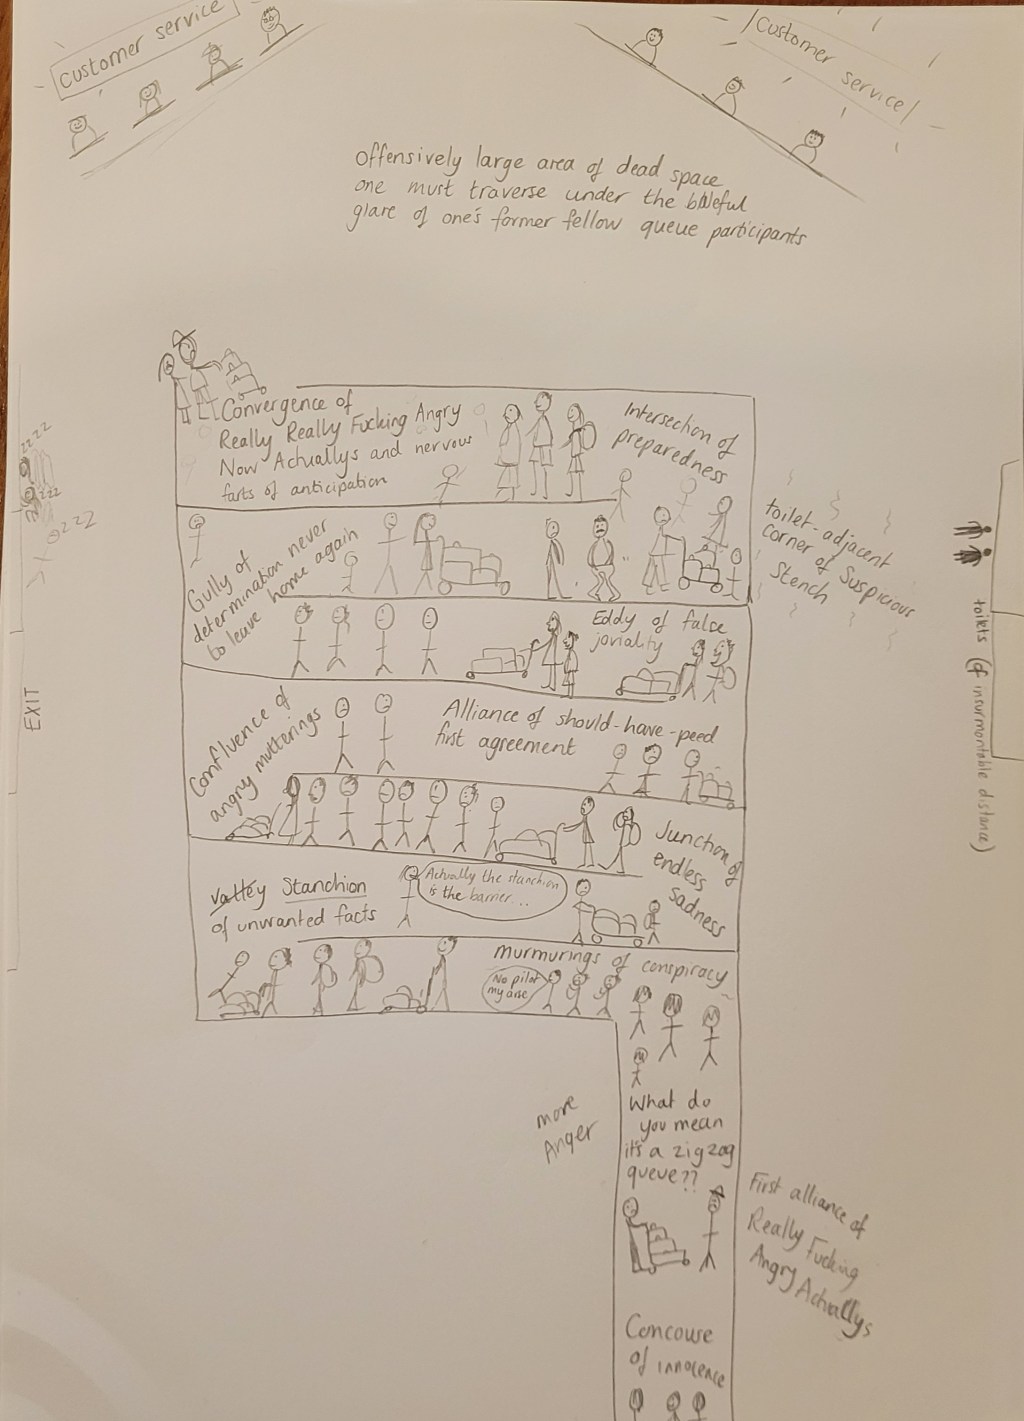 Customer service
Customer service
Offensively large area of dead space
one must traverse under the baleful
glare of one's former fellow queue participants
Convergence of
Really Really Fucking Angry
Now Actuallys and nervous
farts of anticipation
Intersection of
preparedness
zzzz
zzz
zzz
toilet-adjacent
corner of Suspicious
Stench
Gully of
determination never
to leave home again
Eddy of false
joviality
toilets (of insurmontable distance)
EXIT
Confluence of
angry mutterings
Alliance of should-have-peed
first agreement
Junction of
endless
sadness
Valley Stanchion
of unwanted facts
Actually the stanchion
is the barrier...
murmurings of conspiracy
No pilot
my arse
more
Anger
What do
you mean
it's a zigzag
queue??
First alliance of
Really Fucking
Angry Actuallys
Concouse
of innocence